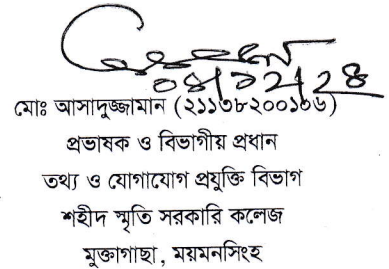 ০৪/১২/২৪
মোঃ আসাদুজ্জামান (২১১৩৮২০০১০৬)
প্রভাষক ও বিভাগীয় প্রধান
তথ্য ও যোগাযোগ প্রযুক্তি বিভাগ
শহীদ স্মৃতি সরকারি কলেজ
মুক্তাগাছা, ময়মনসিংহ